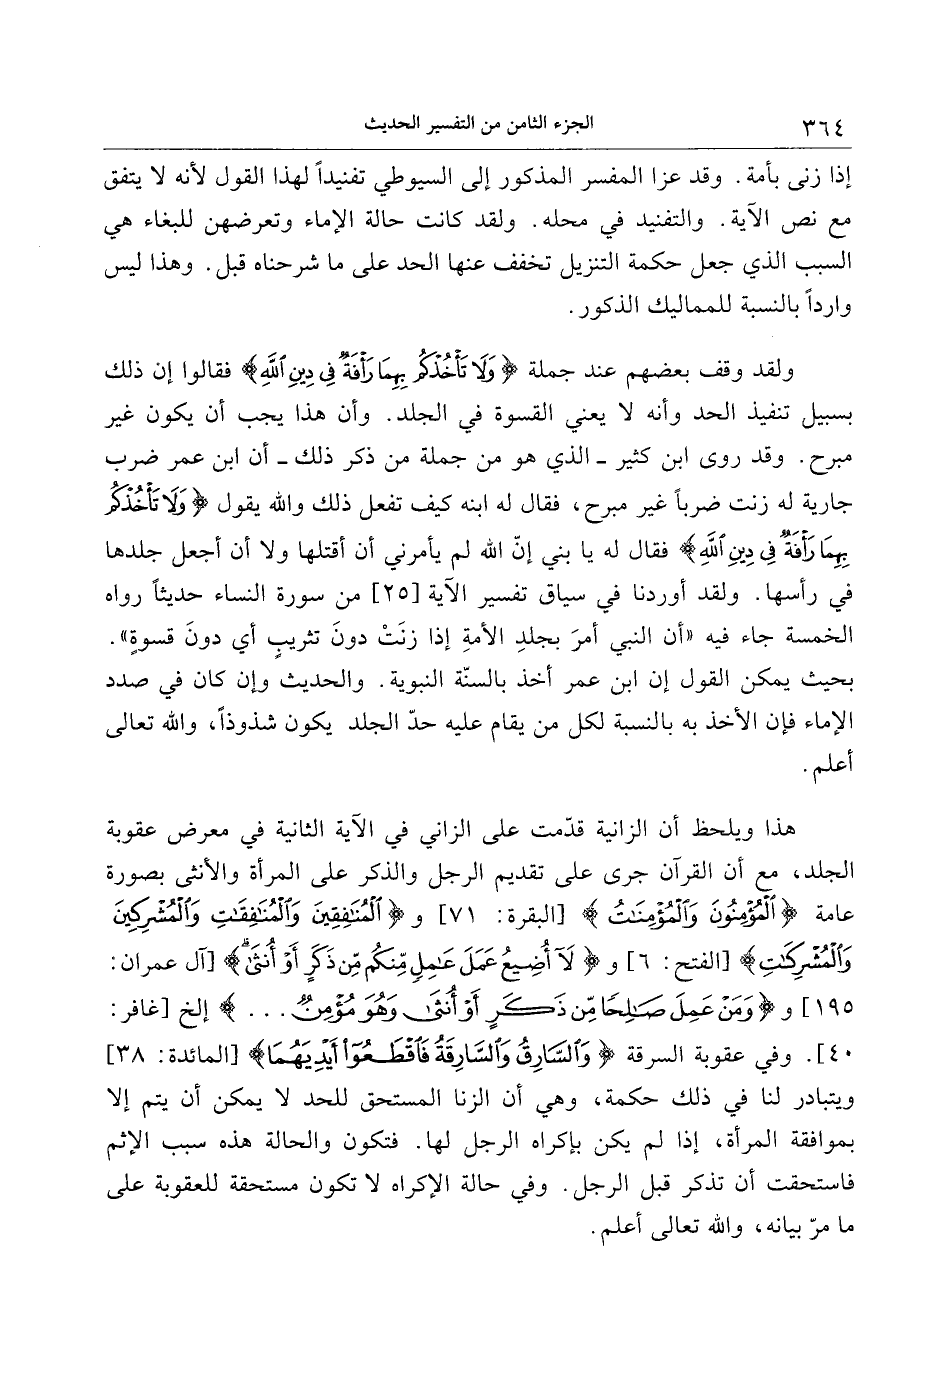 ٣٦٤ الجزء الثامن من التفسير الحديث
إذا زنى بأمة. وقد عزا المفسر المذكور إلى السيوطي تفنيداً لهذا القول لأنه لا يتفق
مع نص الآية. والتفنيد في محله. ولقد كانت حالة الإماء وتعرضهن للبغاء هي
السبب الذي جعل حكمة التنزيل تخفف عنها الحد على ما شرحناه قبل. وهذا ليس
وارداً بالنسبة للمماليك الذكور.
ولقد وقف بعضهم عند جملة ﴿وَلَا تَأْخُذْكُم بِهِمَا رَأْفَةٌ فِي دِينِ ٱللَّهِ﴾ فقالوا إن ذلك
بسبيل تنفيذ الحد وأنه لا يعني القسوة في الجلد. وأن هذا يجب أن يكون غير
مبرح. وقد روى ابن كثير ـ الذي هو من جملة من ذكر ذلك ـ أن ابن عمر ضرب
جارية له زنت ضرباً غير مبرح، فقال له ابنه كيف تفعل ذلك والله يقول ﴿وَلَا تَأْخُذْكُم
بِهِمَا رَأْفَةٌ فِي دِينِ ٱللَّهِ﴾ فقال له يا بني إنّ الله لم يأمرني أن أقتلها ولا أن أجعل جلدها
في رأسها. ولقد أوردنا في سياق تفسير الآية [٢٥] من سورة النساء حديثاً رواه
الخمسة جاء فيه «أن النبي أمرَ بجلدِ الأمةِ إذا زنَتْ دونَ تثريبٍ أي دونَ قسوةٍ».
بحيث يمكن القول إن ابن عمر أخذ بالسنّة النبوية. والحديث وإن كان في صدد
الإماء فإن الأخذ به بالنسبة لكل من يقام عليه حدّ الجلد يكون شذوذاً، والله تعالى
أعلم.
هذا ويلحظ أن الزانية قدّمت على الزاني في الآية الثانية في معرض عقوبة
الجلد، مع أن القرآن جرى على تقديم الرجل والذكر على المرأة والأنثى بصورة
عامة ﴿ٱلْمُؤْمِنُونَ وَٱلْمُؤْمِنَٰتُ﴾ [البقرة: ٧١] و ﴿ٱلْمُنَٰفِقِينَ وَٱلْمُنَٰفِقَٰتِ وَٱلْمُشْرِكِينَ
وَٱلْمُشْرِكَٰتِ﴾ [الفتح: ٦] و ﴿لَآ أُضِيعُ عَمَلَ عَٰمِلٍ مِّنكُم مِّن ذَكَرٍ أَوْ أُنثَىٰ﴾ [آل عمران:
١٩٥] و ﴿وَمَنْ عَمِلَ صَٰلِحًا مِّن ذَكَرٍ أَوْ أُنثَىٰ وَهُوَ مُؤْمِنٌ...﴾ إلخ [غافر:
٤٠]. وفي عقوبة السرقة ﴿وَٱلسَّارِقُ وَٱلسَّارِقَةُ فَٱقْطَعُوٓا۟ أَيْدِيَهُمَا﴾ [المائدة: ٣٨]
ويتبادر لنا في ذلك حكمة، وهي أن الزنا المستحق للحد لا يمكن أن يتم إلا
بموافقة المرأة، إذا لم يكن بإكراه الرجل لها. فتكون والحالة هذه سبب الإثم
فاستحقت أن تذكر قبل الرجل. وفي حالة الإكراه لا تكون مستحقة للعقوبة على
ما مرّ بيانه، والله تعالى أعلم.